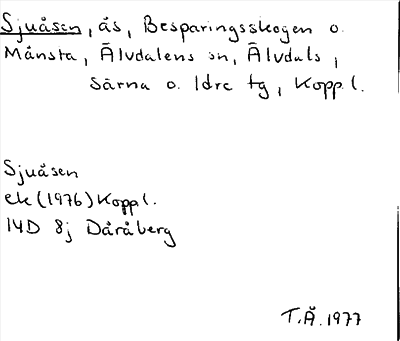 Sjuåsen, ås, Besparingsskogen o.
Månsta, Älvdalens sn, Älvdals,
Särna o. Idre tg, Kopp.l.
Sjuåsen
ek (1976) Kopp l.
14D 8j Dåråberg
T.Å. 1977